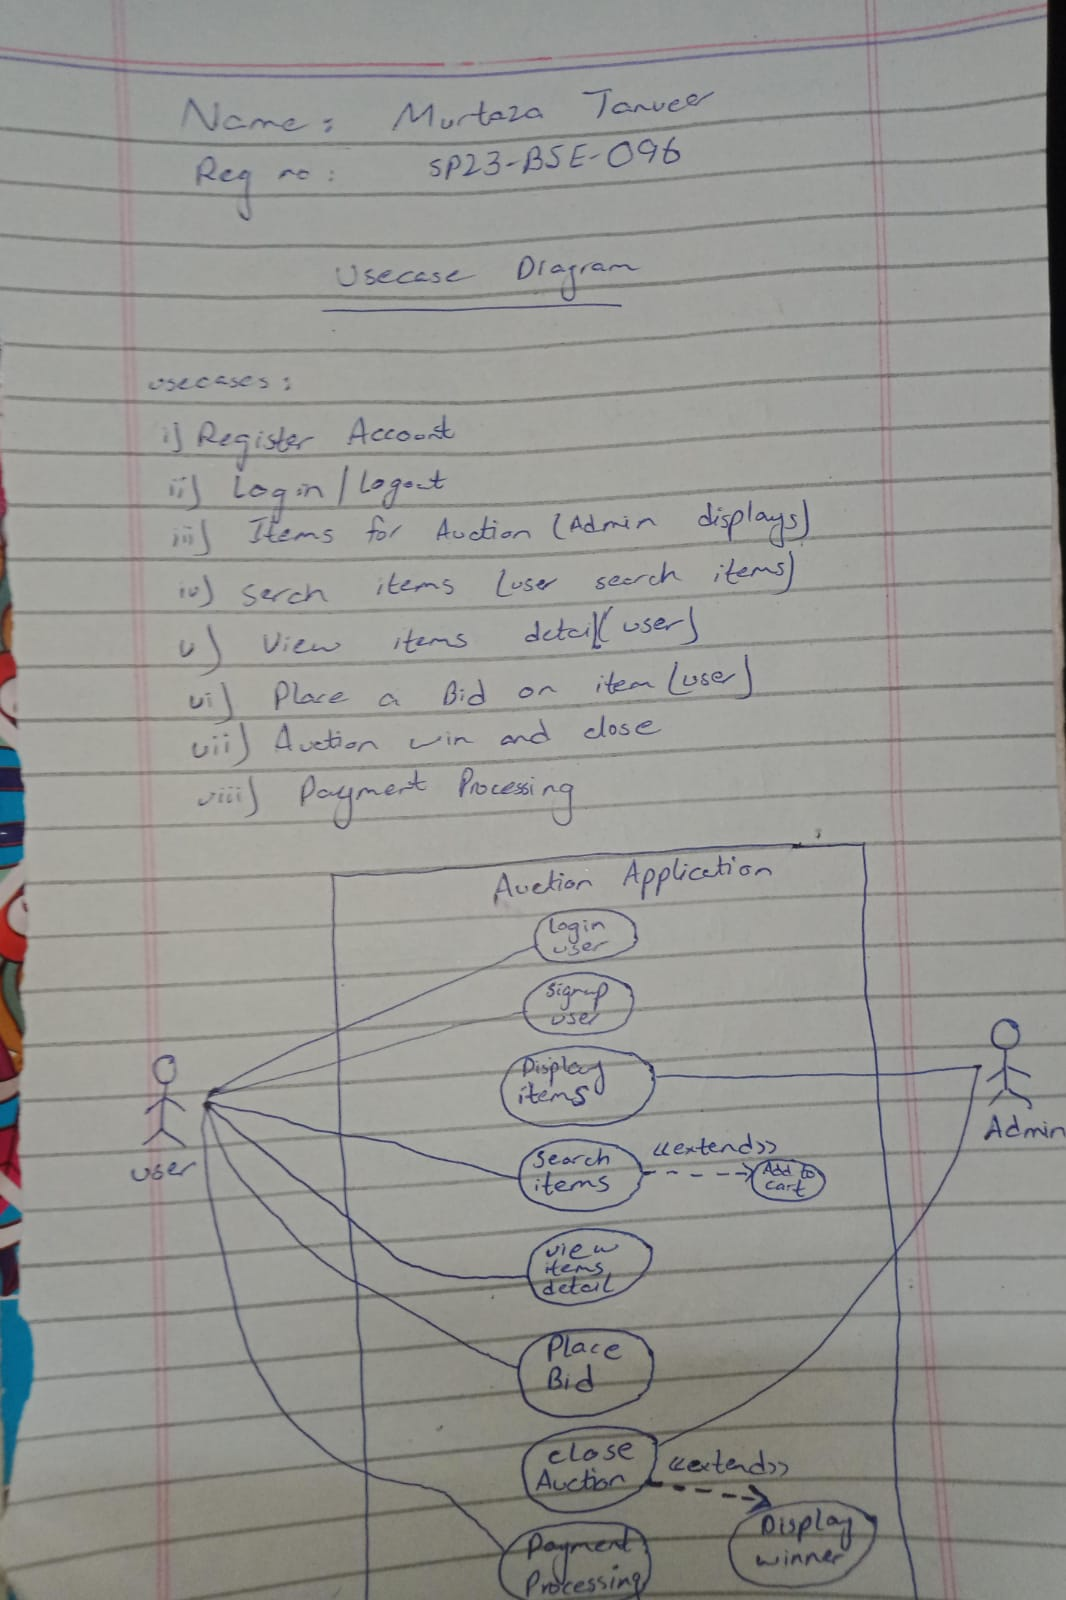 Name: Murtaza Tanveer
Reg no: SP23-BSE-096
Usecase Diagram
usecases:
i) Register Account
ii) Login/Logout
iii) Items for Auction (Admin displays)
iv) Serch items (user search items)
v) View items detail (user)
vi) Place a Bid on item (user)
vii) Auction win and close
viii) Payment Processing
Auction Application
Login
user
Signup
user
Display
items
Search
items
<<extend>>
Add to
cart
view
items
detail
Place
Bid
close
Auction
<<extend>>
Display
winner
Payment
Processing
user
Admin